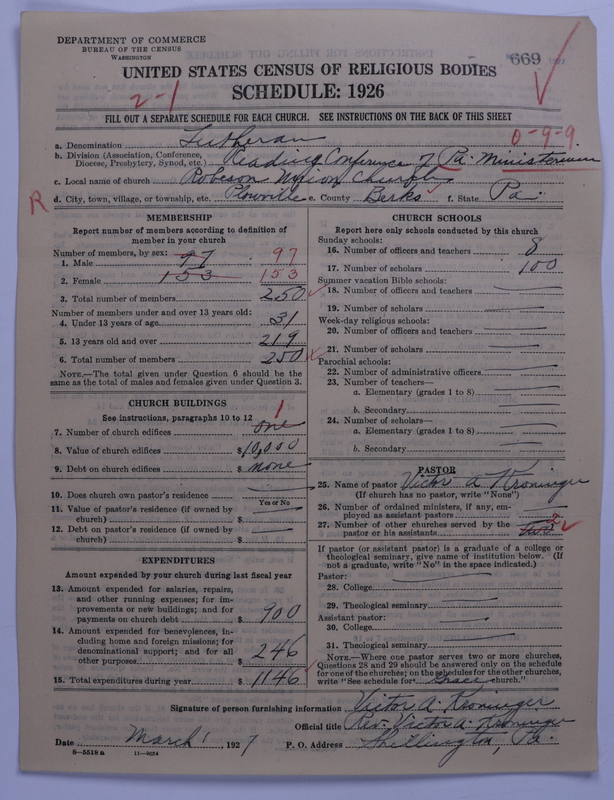 DEPARTMENT OF COMMERCE
BUREAU OF THE CENSUS
WASHINGTON
669
UNITED STATES CENSUS OF RELIGIOUS BODIES
SCHEDULE: 1926
2-1
FILL OUT A SEPARATE SCHEDULE FOR EACH CHURCH. SEE INSTRUCTIONS ON THE BACK OF THIS SHEET
0-9-9
a. Denomination Lutheran
b. Division (Association, Conference, Diocese, Presbytery, Synod, etc.) Reading Conference of Pa. Ministerium
c. Local name of church Robeson Union Church
R d. City, town, village, or township, etc. Plowville e. County Berks f. State Pa.
MEMBERSHIP
Report number of members according to definition of
member in your church
Number of members, by sex:
1. Male 97 97
2. Female 153 153
3. Total number of members 250
Number of members under and over 13 years old:
4. Under 13 years of age 31
5. 13 years old and over 219
6. Total number of members 250
NOTE.—The total given under Question 6 should be
same as the total of males and females given under Question 3.
CHURCH BUILDINGS
See instructions, paragraphs 10 to 12
7. Number of church edifices one 1
8. Value of church edifices $10,000
9. Debt on church edifices $ none
10. Does church own pastor's residence
Yes or No
11. Value of pastor's residence (if owned by
church) $
12. Debt on pastor's residence (if owned by
church) $
EXPENDITURES
Amount expended by your church during last fiscal year
13. Amount expended for salaries, repairs,
and other running expenses; for im-
provements or new buildings; and for
payments on church debt $ 900
14. Amount expended for benevolences, in-
cluding home and foreign missions; for
denominational support; and for all
other purposes $ 246
15. Total expenditures during year $ 1146
CHURCH SCHOOLS
Report here only schools conducted by this church
Sunday schools:
16. Number of officers and teachers 8
17. Number of scholars 100
Summer vacation Bible schools:
18. Number of officers and teachers
19. Number of scholars
Week-day religious schools:
20. Number of officers and teachers
21. Number of scholars
Parochial schools:
22. Number of administrative officers
23. Number of teachers—
a. Elementary (grades 1 to 8)
b. Secondary
24. Number of scholars—
a. Elementary (grades 1 to 8)
b. Secondary
PASTOR
25. Name of pastor Victor A Kroninger
(If church has no pastor, write "None")
26. Number of ordained ministers, if any, em-
ployed as assistant pastors
27. Number of other churches served by the
pastor or his assistants two 2
If pastor (or assistant pastor) is a graduate of a college or
theological seminary, give name of institution below. (If
not a graduate, write "No" in the space indicated.)
Pastor:
28. College
29. Theological seminary
Assistant pastor:
30. College
31. Theological seminary
NOTE.—Where one pastor serves two or more churches,
Questions 28 and 29 should be answered only on the schedule
for one of the churches; on the schedules for the other churches,
write "See schedule for Grace church."
Signature of person furnishing information Victor A. Kroninger
Official title Rev. Victor A. Kroninger
Date March 1 1927 P. O. Address Shillington, Pa.
8-5518 a 11-9054